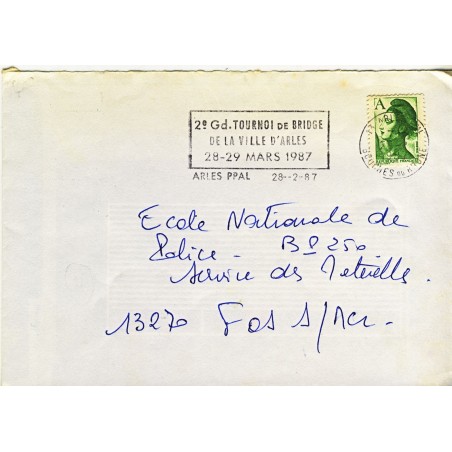 2e Gd. TOURNOI DE BRIDGE
DE LA VILLE D'ARLES
28-29 MARS 1987
ARLES PPAL 28--2-87
A
Ecole Nationale de
Police - BP 250
Service des
13270 FOS S/Mer -